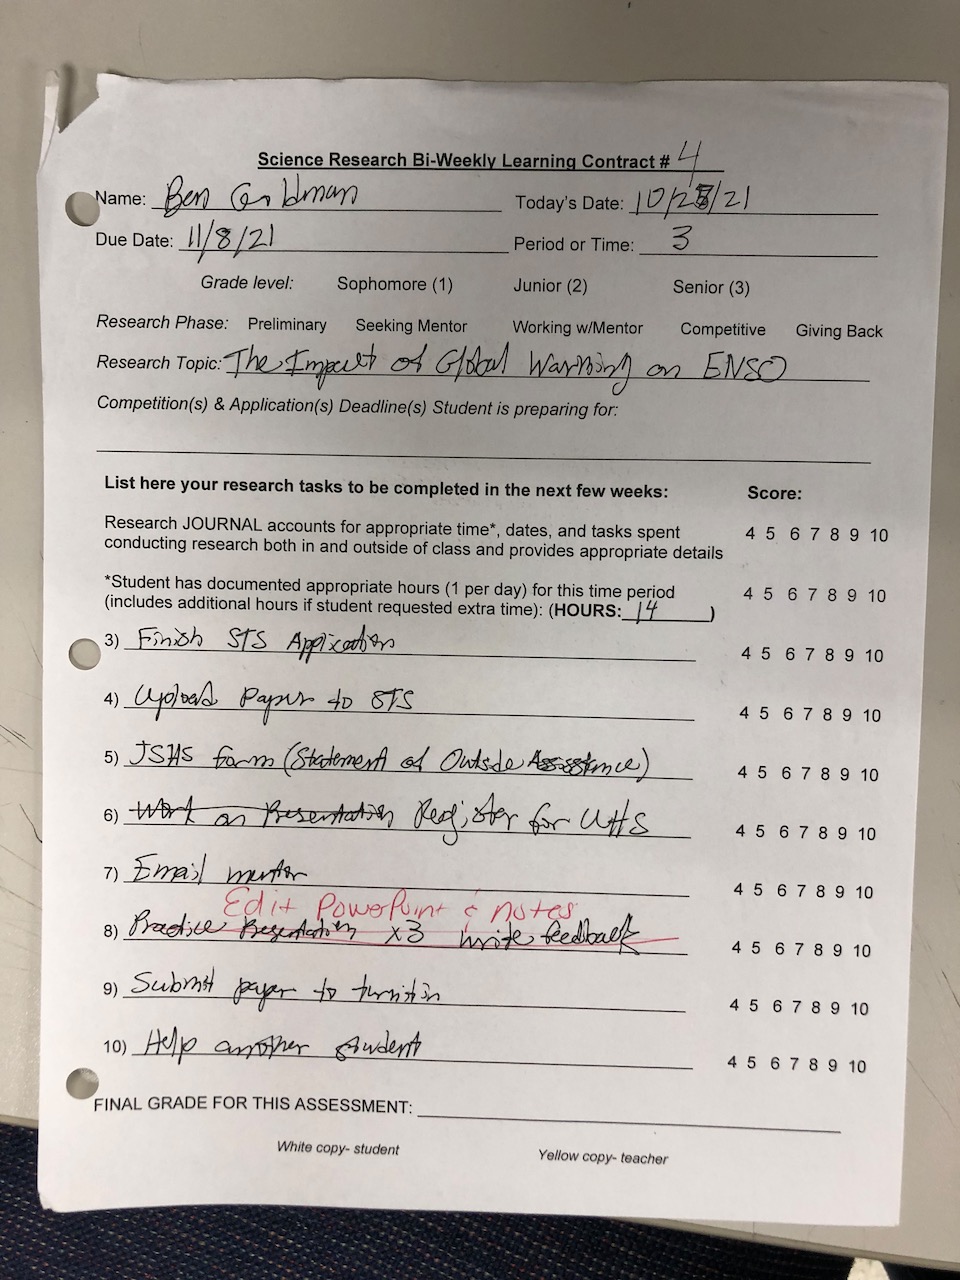 Science Research Bi-Weekly Learning Contract # 4
Name: Ben Goldman Today's Date: 10/25/21
Due Date: 11/8/21 Period or Time: 3
Grade level: Sophomore (1) Junior (2) Senior (3)
Research Phase: Preliminary Seeking Mentor Working w/Mentor Competitive Giving Back
Research Topic: The Impact of Global Warming on ENSO
Competition(s) & Application(s) Deadline(s) Student is preparing for:
List here your research tasks to be completed in the next few weeks: Score:
Research JOURNAL accounts for appropriate time*, dates, and tasks spent
conducting research both in and outside of class and provides appropriate details 4 5 6 7 8 9 10
*Student has documented appropriate hours (1 per day) for this time period
(includes additional hours if student requested extra time): (HOURS: 14 ) 4 5 6 7 8 9 10
3) Finish STS Application 4 5 6 7 8 9 10
4) Upload Paper to STS 4 5 6 7 8 9 10
5) JSHS form (Statement of Outside Assistance) 4 5 6 7 8 9 10
6) Work on Presentation Register for WHS 4 5 6 7 8 9 10
7) Email mentor 4 5 6 7 8 9 10
Edit PowerPoint & notes
8) Practice Presentation x3 write feedback 4 5 6 7 8 9 10
9) Submit paper to turnitin 4 5 6 7 8 9 10
10) Help another student 4 5 6 7 8 9 10
FINAL GRADE FOR THIS ASSESSMENT:
White copy- student Yellow copy- teacher